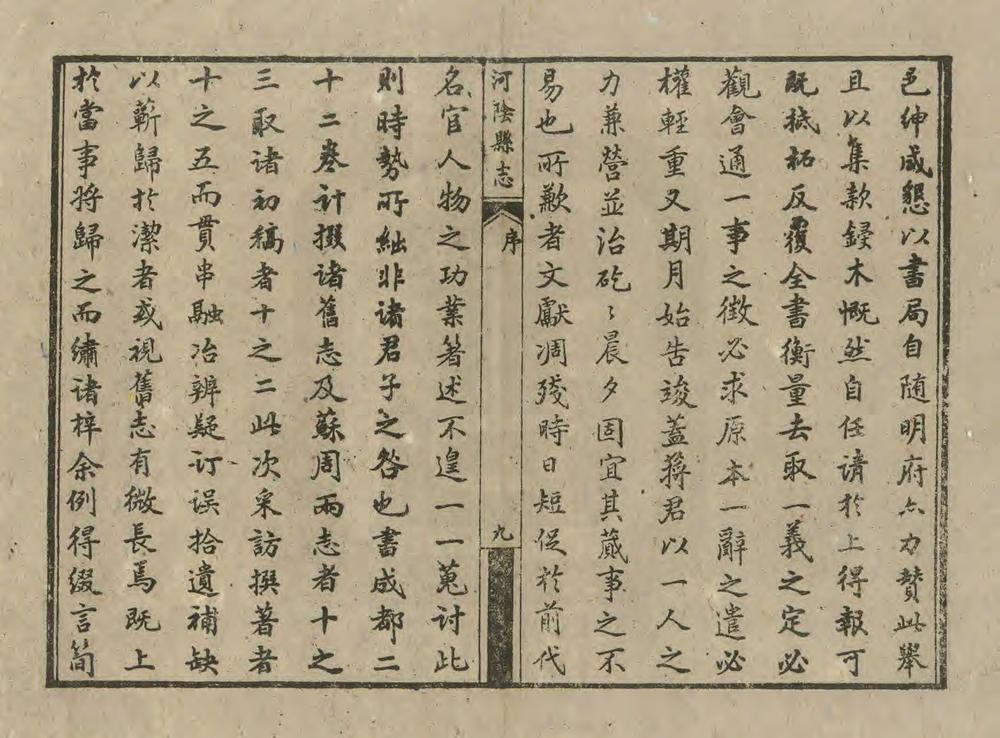 邑紳咸懇以書局自随明府亦力賛此舉
且以集款鋟木慨然自任請於上得報可
既摭拓反覆全書衡量去取一義之定必
觀會通一事之徴必求原本一辭之遣必
權輕重又期月始告竣蓋蔣君以一人之
力兼營並治矻〻晨夕固宜其蕆事之不
易也所歉者文獻凋殘時日短促於前代
河陰縣志
序
九
名官人物之功業著述不遑一一蒐討此
則時勢所絀非諸君子之咎也書成都二
十二卷计掇诸舊志及蘇周兩志者十之
三取诸初稿者十之二此次采訪撰著者
十之五而貫串融冶辨疑订误拾遺補缺
以蕲歸於潔者或視舊志有微長焉既上
於當事将歸之而繡诸梓余例得缀言简